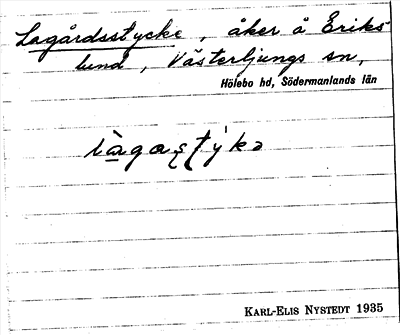 Lagårdsstycke, åker å Eriks-
lund, Västerljungs sn,
Hölebo hd, Södermanlands län
KARL-ELIS NYSTEDT 1935